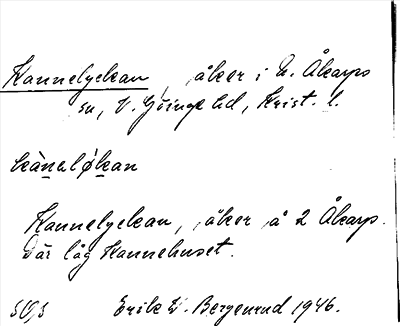 Kannelyckan, åker i N. Åkarps
sn, V. Göinge hd, Krist. l.
kànəløkan
Kannelyckan, åker å 2 Åkarp.
Där låg Kannehuset.
Erik W. Bergenrud 1946.